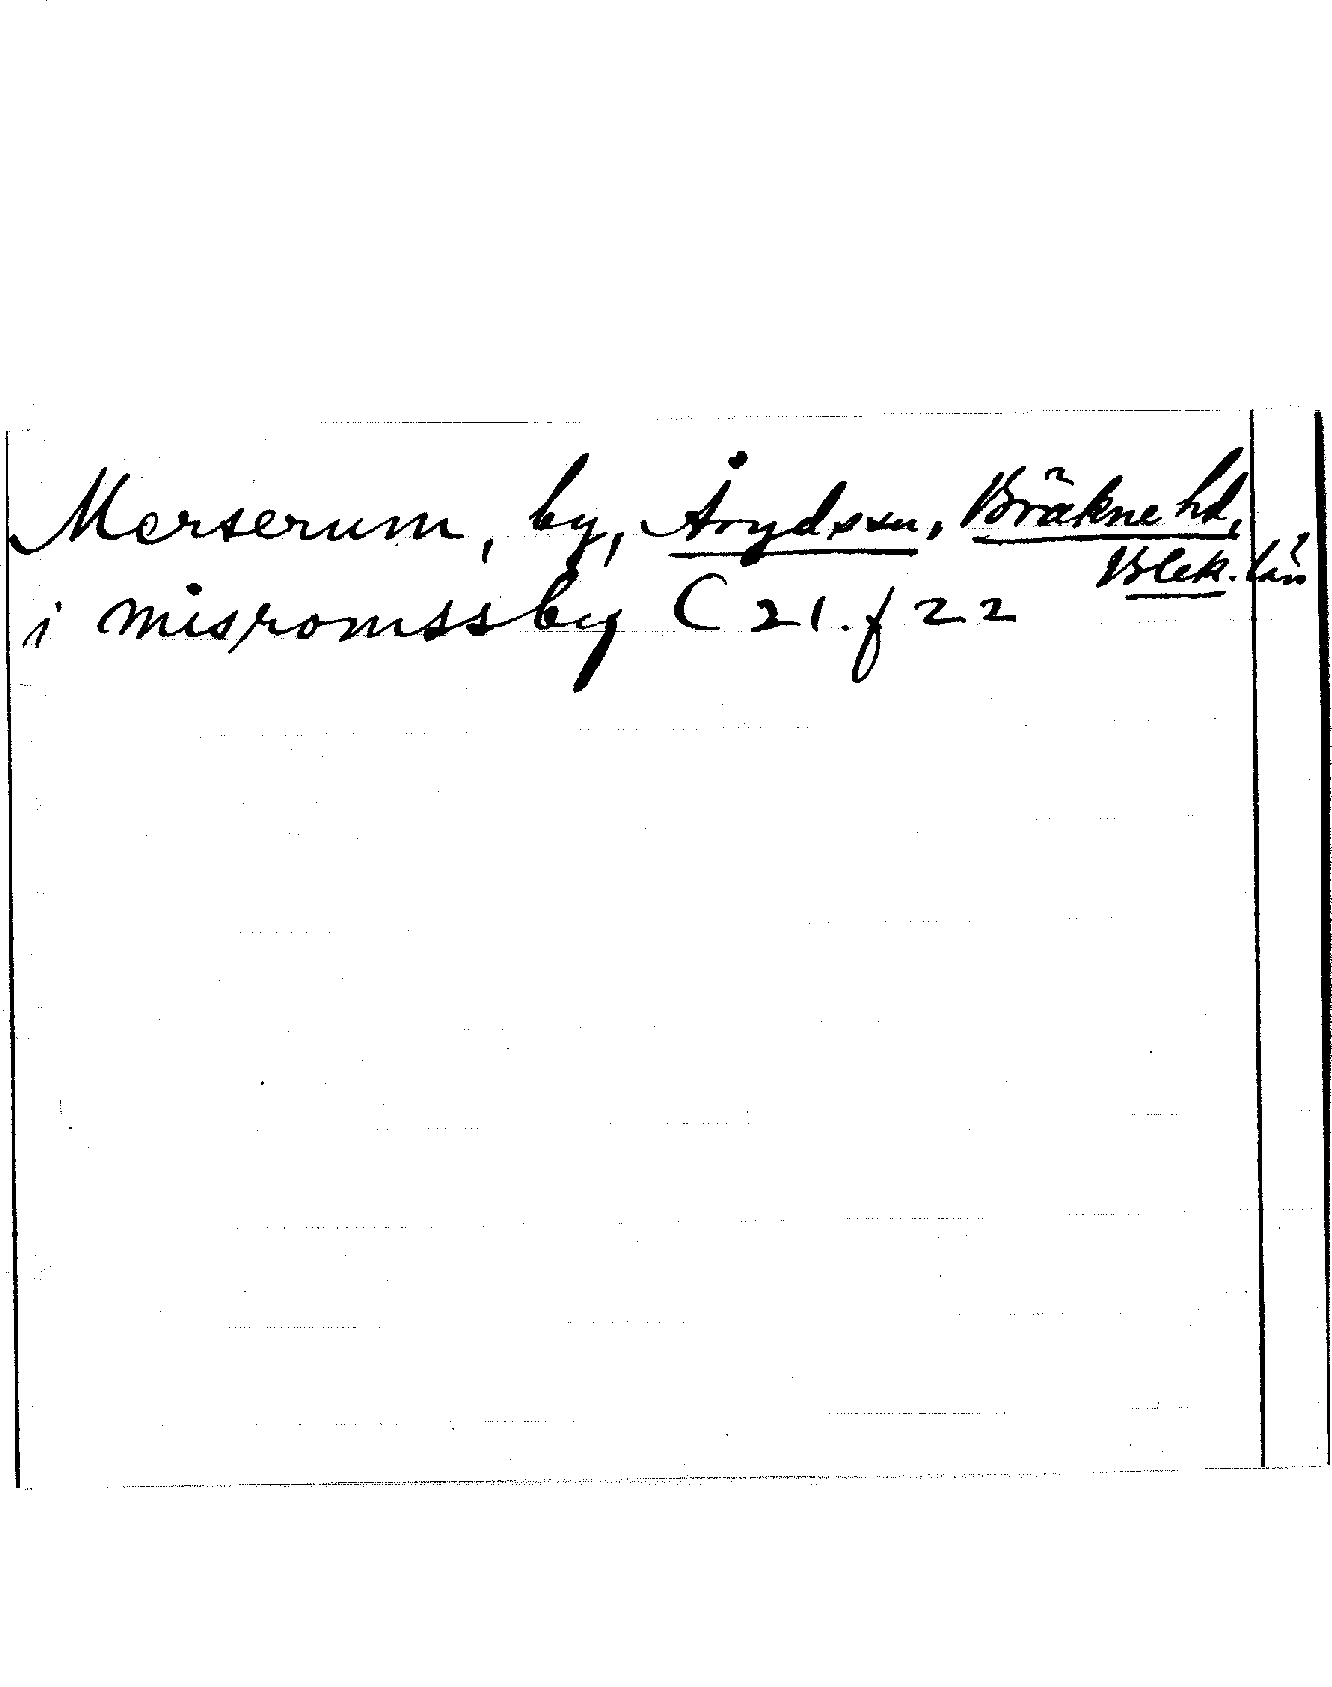 Merserum, by, Åryds sn, Bräkne hd,
Blek. län
i misromssby C 21. f 22